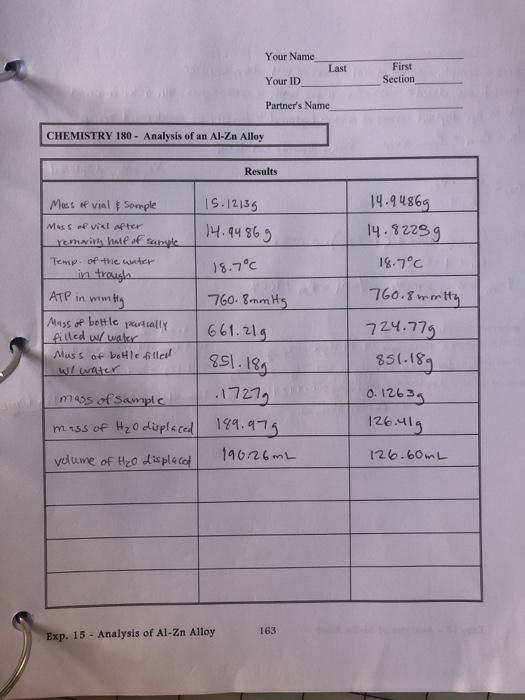 Your Name
Last First
Your ID Section
Partner's Name
CHEMISTRY 180 - Analysis of an Al-Zn Alloy
Results
Mass of vial & Sample 15.1213g 14.9486g
Mass of vial after removing half of sample 14.9486g 14.8223g
Temp. of the water in trough 18.7°C 18.7°C
ATP in mmHg 760.8mmHg 760.8mmHg
Mass of bottle partially filled w/ water 661.21g 724.77g
Mass of bottle filled w/ water 851.18g 851.18g
mass of sample .1727g 0.1263g
mass of H2O displaced 189.97g 126.41g
volume of H2O displaced 190.26mL 126.60mL
Exp. 15 - Analysis of Al-Zn Alloy 163